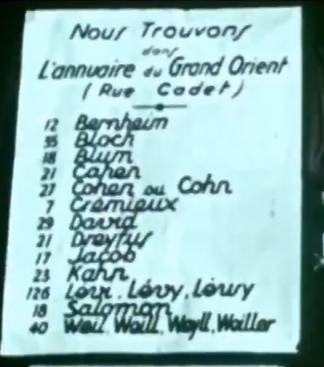 Nous Trouvons
dans
L'annuaire du Grand Orient
( Rue Cadet )
12 Bernheim
35 Bloch
18 Blum
21 Cahen
27 Cohen ou Cohn
7 Crémieux
29 David
21 Dreyfus
17 Jacob
23 Kahn
126 Lévi, Lévy, Léwy
18 Salomon
40 Weil, Weill, Weyll, Weiller